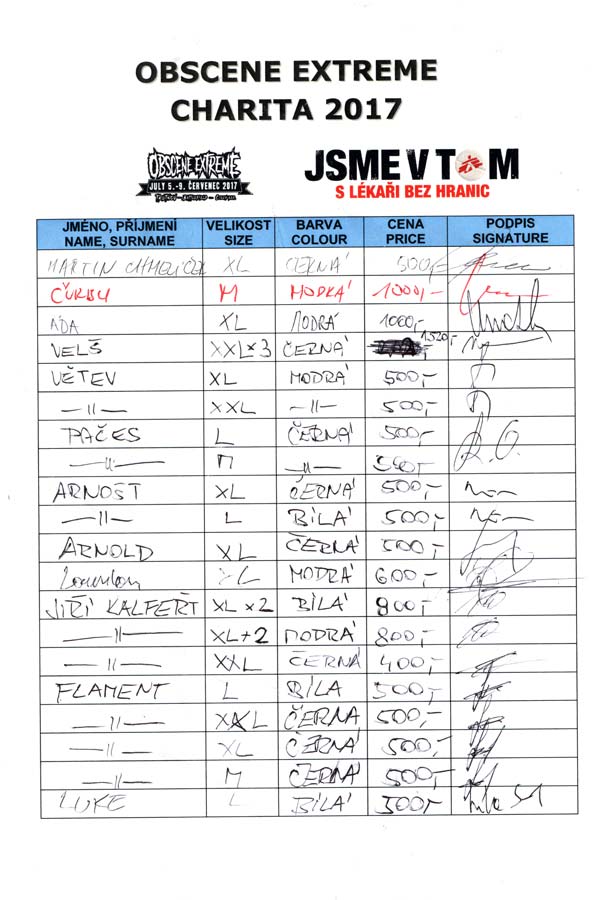 OBSCENE EXTREME
CHARITA 2017
OBSCENE EXTREME
JULY 5.-9. ČERVENEC 2017
JSME V TOM
S LÉKAŘI BEZ HRANIC
JMÉNO, PŘÍJMENÍ VELIKOST BARVA CENA PODPIS
NAME, SURNAME SIZE COLOUR PRICE SIGNATURE
MARTIN XL ČERNÁ 500,-
ČURBY M MODRÁ 1000,-
ÁDA XL MODRÁ 1000,-
VELŠ XXL×3 ČERNÁ 1.520,-
VĚTEV XL MODRÁ 500,-
—II— XXL —II— 500,-
PAČES L ČERNÁ 500,-
—II— M —II— 500,-
ARNOŠT XL ČERNÁ 500,-
—II— L BÍLÁ 500,-
ARNOLD XL ČERNÁ 500,-
MODRÁ 600,-
JIŘÍ KALFEŘT XL ×2 BÍLÁ 800,-
—II— XL+2 MODRÁ 800,-
—II— XXL ČERNÁ 400,-
FLAMENT L BÍLA 500,-
—II— XXL ČERNA 500,-
—II— XL ČERNÁ 500,-
—II— M ČERNÁ 500,-
LUKE L BÍLÁ 500,-